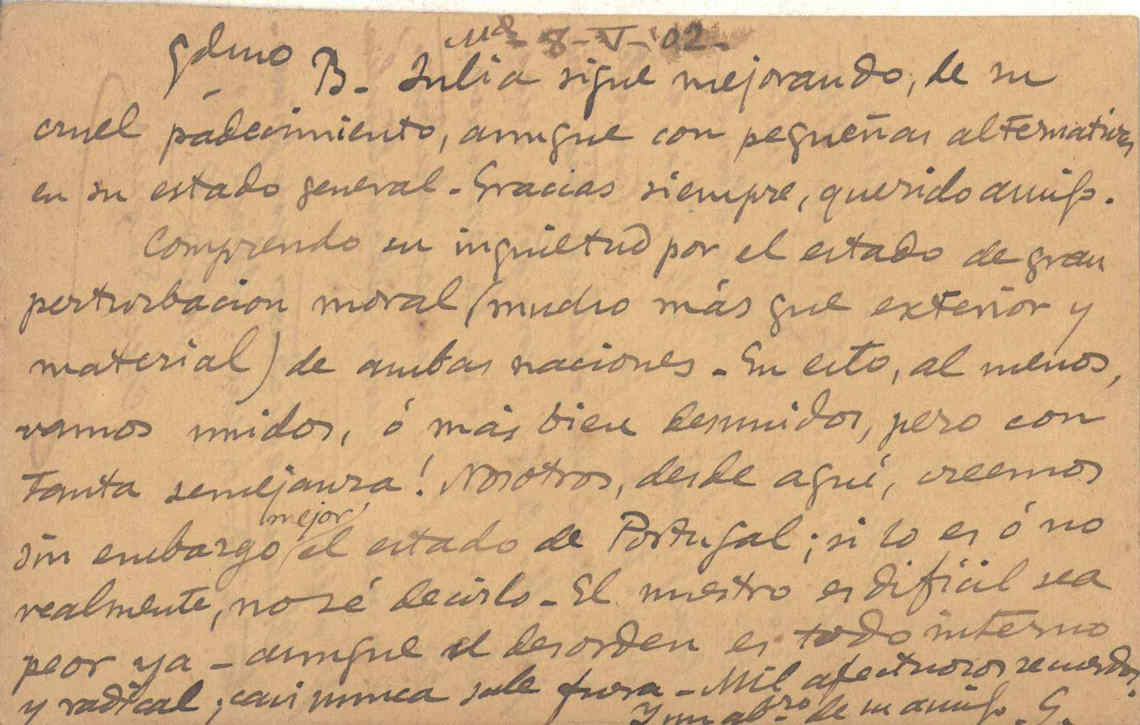 Md- 8-V-02-
Qdmo B. Julia sigue mejorando, de su
cruel padecimiento, aunque con pequeñas alternativas
en su estado general - Gracias siempre, querido amigo.
Comprendo su inquietud por el estado de gran
perturbacion moral (mucho más que exterior y
material) de ambas naciones - En esto, al menos,
vamos unidos, ó más bien desunidos, pero con
tanta semejanza! Nosotros, desde aquí, creemos
mejor
sin embargo el estado de Portugal; si lo es ó no
realmente, no sé decirlo - El nuestro es dificil sea
peor ya - aunque el desorden es todo interno
y radical; casi nunca sale fuera - Mil afectuosos recuerdos,
Y un abzo de su amigo G